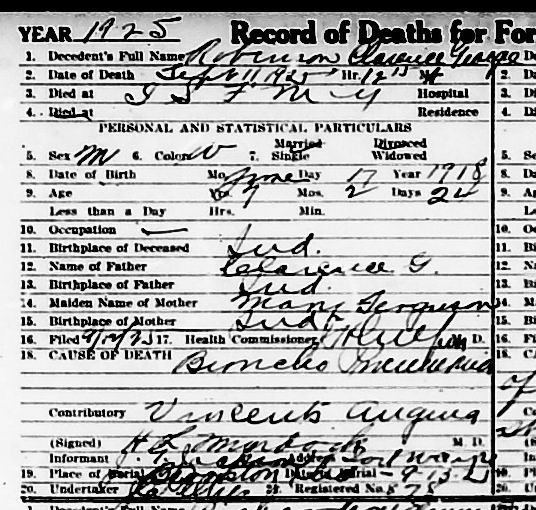 YEAR 1925 Record of Deaths for For
1. Decedent's Full Name Robinson Clarence George
2. Date of Death Sept 11 1925 Hr. 12 15
3. Died at I S F M Y Hospital
4. Died at Residence
PERSONAL AND STATISTICAL PARTICULARS
Married Divorced
5. Sex M 6. Color W 7. Single Widowed
8. Date of Birth Mo. June Day 17 Year 1918
9. Age Yrs. 7 Mos. 2 Days 24
Less than a Day Hrs. Min.
10. Occupation —
11. Birthplace of Deceased Ind.
12. Name of Father Clarence G.
13. Birthplace of Father Ind.
14. Maiden Name of Mother Mary Ferguson
15. Birthplace of Mother Ind.
16. Filed 17. Health Commissioner M D.
18. CAUSE OF DEATH Broncho Pneumonia
Contributory Vincents Angina
(Signed) H. L. Murdock M. D.
Informant Address Fort Wayne
19. Place of Burial Date of Burial 9-13
20. Undertaker 21. Registered No.